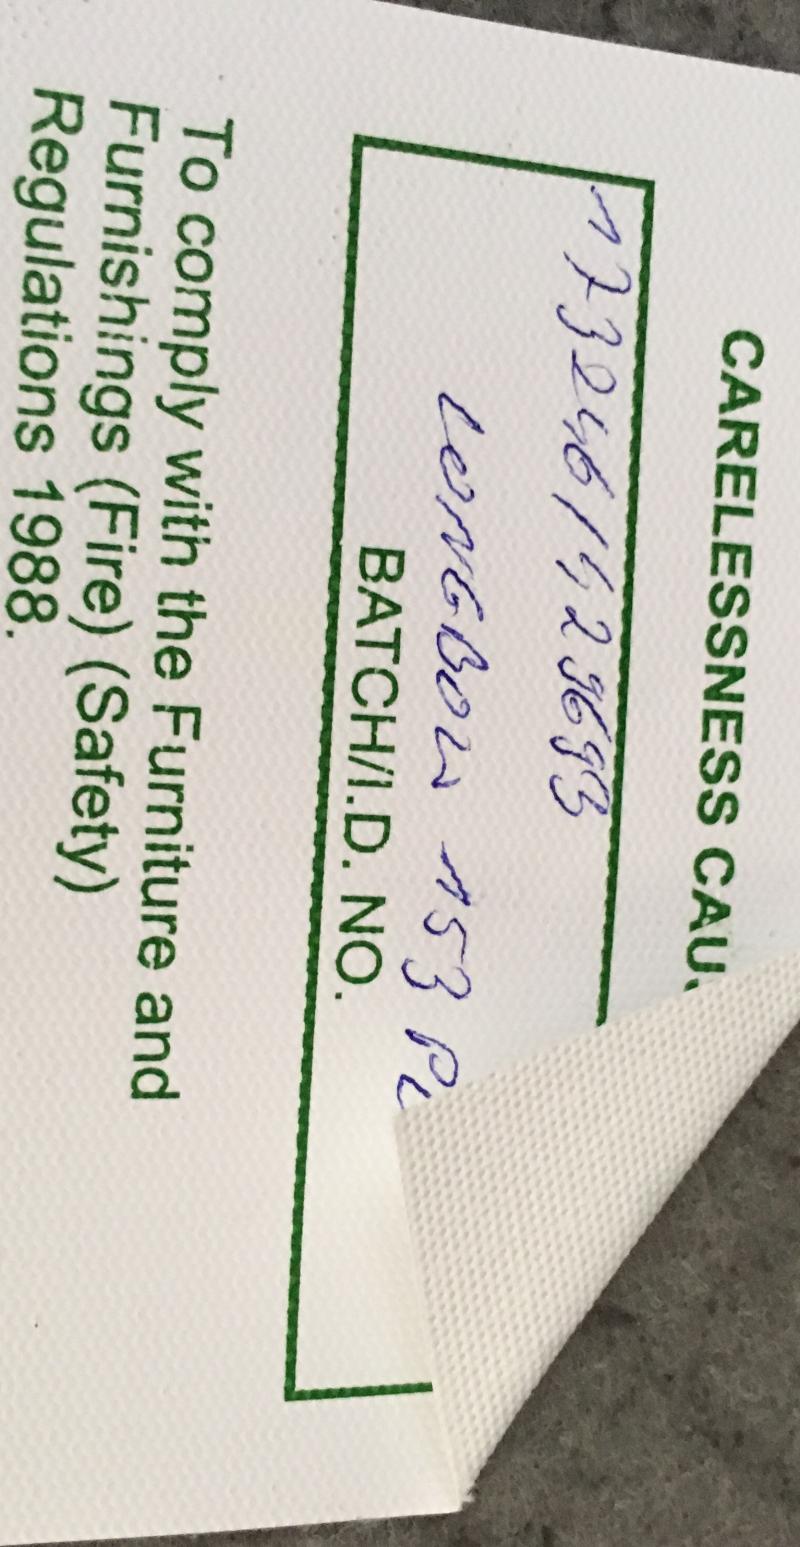 CARELESSNESS CAU
173246/429693
LONGBOW 153 PL
BATCH/I.D. NO.
To comply with the Furniture and
Furnishings (Fire) (Safety)
Regulations 1988.